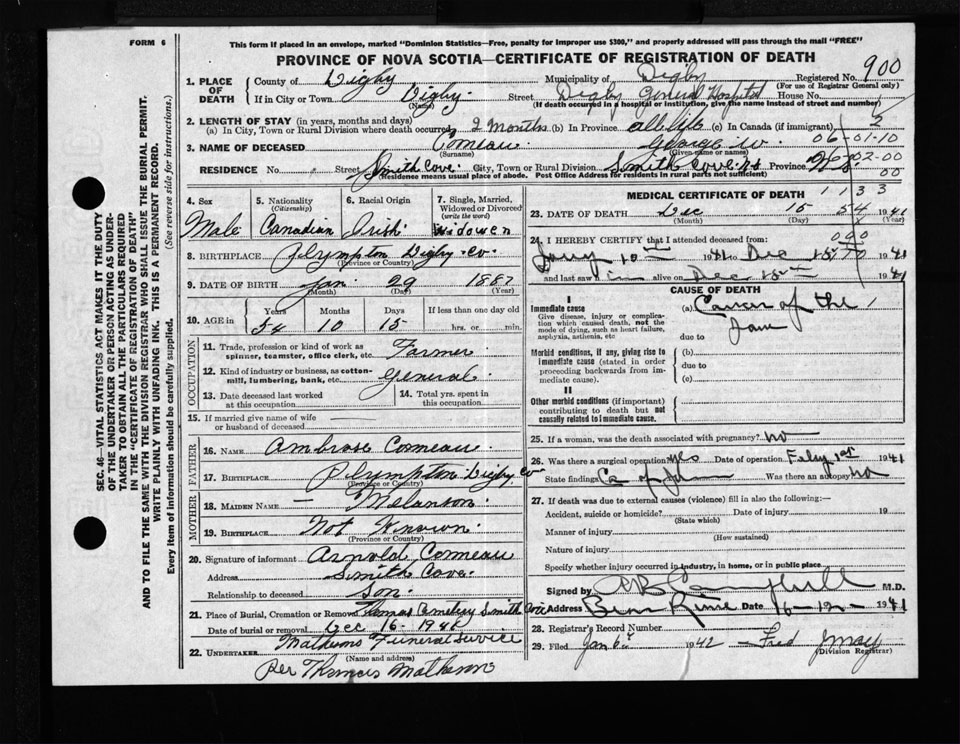 FORM 6
This form if placed in an envelope, marked "Dominion Statistics—Free, penalty for improper use $300," and properly addressed will pass through the mail "FREE"
PROVINCE OF NOVA SCOTIA—CERTIFICATE OF REGISTRATION OF DEATH
SEC. 46—VITAL STATISTICS ACT MAKES IT THE DUTY
OF THE UNDERTAKER OR PERSON ACTING AS UNDER-
TAKER TO OBTAIN ALL THE PARTICULARS REQUIRED
IN THE "CERTIFICATE OF REGISTRATION OF DEATH"
AND TO FILE THE SAME WITH THE DIVISION REGISTRAR WHO SHALL ISSUE THE BURIAL PERMIT.
WRITE PLAINLY WITH UNFADING INK. THIS IS A PERMANENT RECORD.
Every item of information should be carefully supplied. (See reverse side for instructions.)
1. PLACE OF DEATH County of Digby Municipality of Digby Registered No. 900
(For use of Registrar General only)
If in City or Town Digby (Name) Street Digby General Hospital House No.
(If death occurred in a hospital or institution, give the name instead of street and number)
2. LENGTH OF STAY (in years, months and days)
(a) In City, Town or Rural Division where death occurred 2 months (b) In Province all life (c) In Canada (if immigrant) 2
06-01-10
3. NAME OF DECEASED Comeau George W.
(Surname) (Given name or names)
RESIDENCE No. Street Smith Cove City, Town or Rural Division Smith Cove N.S Province 02-00
(Residence means usual place of abode. Post Office Address for residents in rural parts not sufficient) 00
4. Sex Male
5. Nationality (Citizenship) Canadian
6. Racial Origin Irish
7. Single, Married, Widowed or Divorced (write the word) Widower
8. BIRTHPLACE Plympton Digby Co.
(Province or Country)
9. DATE OF BIRTH Jan 29 1887
(Month) (Day) (Year)
10. AGE in Years Months Days If less than one day old
54 10 15 hrs. or min.
OCCUPATION
11. Trade, profession or kind of work as spinner, teamster, office clerk, etc. Farmer
12. Kind of industry or business, as cotton-mill, lumbering, bank, etc. General
13. Date deceased last worked at this occupation
14. Total yrs. spent in this occupation
15. If married give name of wife or husband of deceased
FATHER
16. NAME Ambrose Comeau
17. BIRTHPLACE Plympton Digby Co
(Province or Country)
MOTHER
18. MAIDEN NAME — Melanson
19. BIRTHPLACE Not Known
(Province or Country)
20. Signature of informant Arnold Comeau
Address Smith Cove
Relationship to deceased Son
21. Place of Burial, Cremation or Removal Thomas Cemetery Smith Cove
Date of burial or removal Dec 16 - 1941
22. UNDERTAKER Mathesons Funeral Service
(Name and address)
Per Thomas Matheson
MEDICAL CERTIFICATE OF DEATH
1133
23. DATE OF DEATH Dec 15 54 1941
(Month) (Day) (Year)
000
24. I HEREBY CERTIFY that I attended deceased from:
10th 1941 to Dec 1941
and last saw him alive on Dec 15th 1941
CAUSE OF DEATH
I
Immediate cause
Give disease, injury or complication which caused death, not the mode of dying, such as heart failure, asphyxia, asthenia, etc
(a) Cancer of the Jaw
due to
Morbid conditions, if any, giving rise to immediate cause (stated in order proceeding backwards from immediate cause).
(b)
due to
(c)
II
Other morbid conditions (if important) contributing to death but not causally related to immediate cause.
25. If a woman, was the death associated with pregnancy? no
26. Was there a surgical operation yes Date of operation Feby 1st 1941
State findings Ca of Jaw Was there an autopsy no
27. If death was due to external causes (violence) fill in also the following:—
Accident, suicide or homicide? Date of injury 19
(State which)
Manner of injury
(How sustained)
Nature of injury
Specify whether injury occurred in industry, in home, or in public place
Signed by M.D.
Address Bear River Date 16-12- 1941
28. Registrar's Record Number
29. Filed Jan 1942 — Fred Jmay
(Division Registrar)